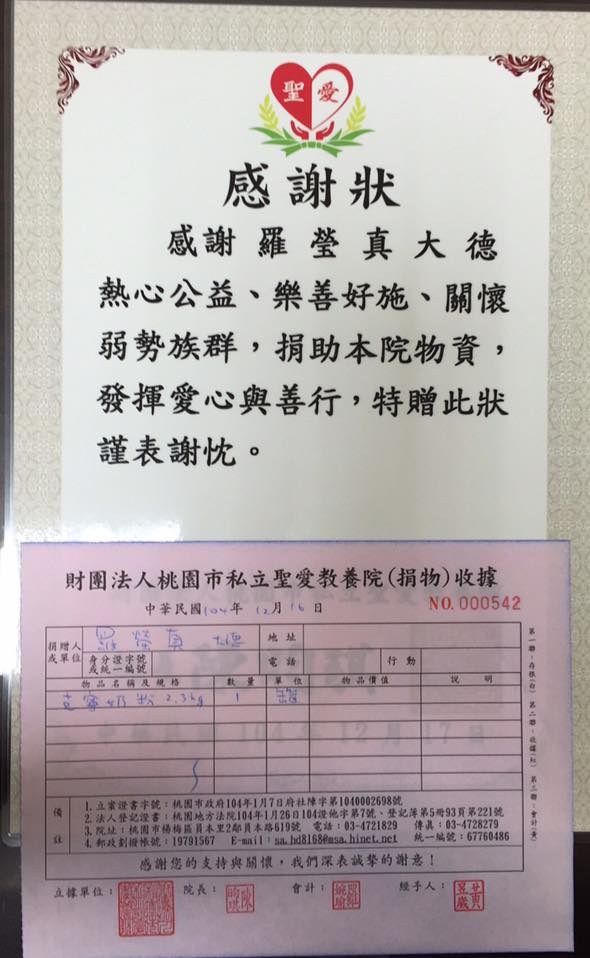 聖愛
感謝狀
感謝羅瑩真大德
熱心公益、樂善好施、關懷
弱勢族群，捐助本院物資，
發揮愛心與善行，特贈此狀
謹表謝忱。
財團法人桃園市私立聖愛教養院(捐物)收據
中華民國104年12月16日
NO.000542
捐贈人或單位 羅瑩真 大德 地址
身分證字號或統一編號 電話 行動
物品名稱及規格 數量 單位 物品價值 說明
克寧奶粉 2.3kg 1 罐
備註
1.立案證書字號：桃園市政府104年1月7日府社障字第1040002698號
2.法人登記證書：桃園地方法院104年1月26日104證他字第7號、登記簿第5冊93頁第221號
3.院址：桃園市楊梅區員本里2鄰員本路619號 電話：03-4721829 傳真：03-4728279
4.郵政劃撥帳號：19791567 E-mail：sa.hd8168@msa.hinet.net 統一編號：67760486
感謝您的支持與關懷，我們深表誠摯的謝意！
立據單位： 院長： 會計： 經手人：
第一聯：存根(白) 第二聯：收據(紅) 第三聯：會計(黃)